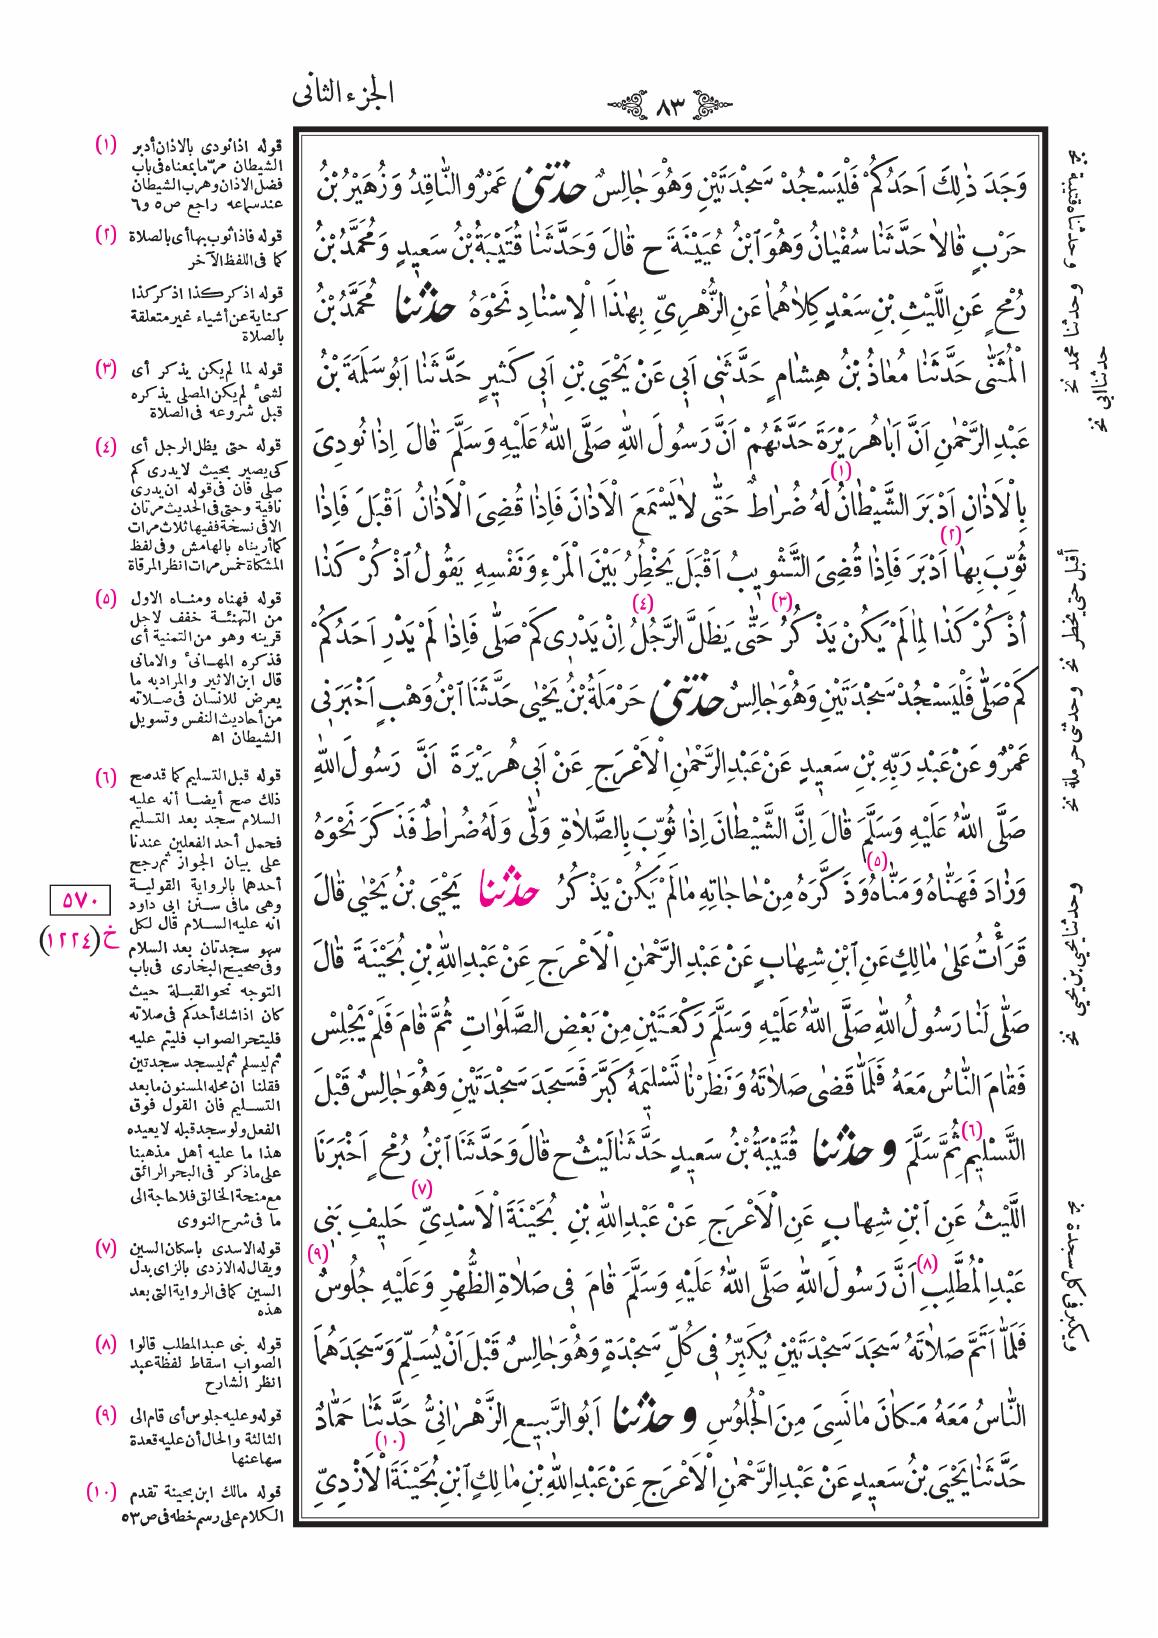 ٨٣
الجزء الثانى
وَجَدَ ذٰلِكَ اَحَدُكُمْ فَلْيَسْجُدْ سَجْدَتَيْنِ وَهُوَ جَالِسٌ حَدَّثَنِى عَمْرٌو النَّاقِدُ وَزُهَيْرُ بْنُ
حَرْبٍ قَالَا حَدَّثَنَا سُفْيَانُ وَهُوَ ابْنُ عُيَيْنَةَ ح قَالَ وَحَدَّثَنَا قُتَيْبَةُ بْنُ سَعِيدٍ وَمُحَمَّدُ بْنُ
رُمْحٍ عَنِ اللَّيْثِ بْنِ سَعْدٍ كِلَاهُمَا عَنِ الزُّهْرِىِّ بِهٰذَا الْاِسْنَادِ نَحْوَهُ حَدَّثَنَا مُحَمَّدُ بْنُ
الْمُثَنَّى حَدَّثَنَا مُعَاذُ بْنُ هِشَامٍ حَدَّثَنِى اَبِى عَنْ يَحْيَى بْنِ اَبِى كَثِيرٍ حَدَّثَنَا اَبُو سَلَمَةَ بْنُ
عَبْدِ الرَّحْمٰنِ اَنَّ اَبَا هُرَيْرَةَ حَدَّثَهُمْ اَنَّ رَسُولَ اللهِ صَلَّى اللهُ عَلَيْهِ وَسَلَّمَ قَالَ اِذَا نُودِىَ
بِالْاَذَانِ اَدْبَرَ الشَّيْطَانُ (١) لَهُ ضُرَاطٌ حَتَّى لَا يَسْمَعَ الْاَذَانَ فَاِذَا قُضِىَ الْاَذَانُ اَقْبَلَ فَاِذَا
ثُوِّبَ بِهَا (٢) اَدْبَرَ فَاِذَا قُضِىَ التَّثْوِيبُ اَقْبَلَ يَخْطِرُ بَيْنَ الْمَرْءِ وَنَفْسِهِ يَقُولُ اُذْكُرْ كَذَا
اُذْكُرْ كَذَا لِمَا لَمْ يَكُنْ يَذْكُرُ (٣) حَتَّى يَظَلَّ الرَّجُلُ (٤) اِنْ يَدْرِى كَمْ صَلَّى فَاِذَا لَمْ يَدْرِ اَحَدُكُمْ
كَمْ صَلَّى فَلْيَسْجُدْ سَجْدَتَيْنِ وَهُوَ جَالِسٌ حَدَّثَنِى حَرْمَلَةُ بْنُ يَحْيَى حَدَّثَنَا ابْنُ وَهْبٍ اَخْبَرَنِى
عَمْرٌو عَنْ عَبْدِ رَبِّهِ بْنِ سَعِيدٍ عَنْ عَبْدِ الرَّحْمٰنِ الْاَعْرَجِ عَنْ اَبِى هُرَيْرَةَ اَنَّ رَسُولَ اللهِ
صَلَّى اللهُ عَلَيْهِ وَسَلَّمَ قَالَ اِنَّ الشَّيْطَانَ اِذَا ثُوِّبَ بِالصَّلَاةِ وَلَّى وَلَهُ ضُرَاطٌ فَذَكَرَ نَحْوَهُ
وَزَادَ فَهَنَّاهُ وَمَنَّاهُ (٥) وَذَكَّرَهُ مِنْ حَاجَاتِهِ مَا لَمْ يَكُنْ يَذْكُرُ حَدَّثَنَا يَحْيَى بْنُ يَحْيَى قَالَ
قَرَأْتُ عَلَى مَالِكٍ عَنِ ابْنِ شِهَابٍ عَنْ عَبْدِ الرَّحْمٰنِ الْاَعْرَجِ عَنْ عَبْدِ اللهِ بْنِ بُحَيْنَةَ قَالَ
صَلَّى لَنَا رَسُولُ اللهِ صَلَّى اللهُ عَلَيْهِ وَسَلَّمَ رَكْعَتَيْنِ مِنْ بَعْضِ الصَّلَوَاتِ ثُمَّ قَامَ فَلَمْ يَجْلِسْ
فَقَامَ النَّاسُ مَعَهُ فَلَمَّا قَضَى صَلَاتَهُ وَنَظَرْنَا تَسْلِيمَهُ كَبَّرَ فَسَجَدَ سَجْدَتَيْنِ وَهُوَ جَالِسٌ قَبْلَ
التَّسْلِيمِ (٦) ثُمَّ سَلَّمَ وَحَدَّثَنَا قُتَيْبَةُ بْنُ سَعِيدٍ حَدَّثَنَا لَيْثٌ ح قَالَ وَحَدَّثَنَا ابْنُ رُمْحٍ اَخْبَرَنَا
اللَّيْثُ عَنِ ابْنِ شِهَابٍ عَنِ الْاَعْرَجِ عَنْ عَبْدِ اللهِ بْنِ بُحَيْنَةَ الْاَسْدِىِّ (٧) حَلِيفِ بَنِى
عَبْدِ الْمُطَّلِبِ (٨) اَنَّ رَسُولَ اللهِ صَلَّى اللهُ عَلَيْهِ وَسَلَّمَ قَامَ فِى صَلَاةِ الظُّهْرِ وَعَلَيْهِ جُلُوسٌ (٩)
فَلَمَّا اَتَمَّ صَلَاتَهُ سَجَدَ سَجْدَتَيْنِ يُكَبِّرُ فِى كُلِّ سَجْدَةٍ وَهُوَ جَالِسٌ قَبْلَ اَنْ يُسَلِّمَ وَسَجَدَهُمَا
النَّاسُ مَعَهُ مَكَانَ مَا نَسِىَ مِنَ الْجُلُوسِ وَحَدَّثَنَا اَبُو الرَّبِيعِ الزَّهْرَانِىُّ حَدَّثَنَا حَمَّادٌ
حَدَّثَنَا يَحْيَى بْنُ سَعِيدٍ عَنْ عَبْدِ الرَّحْمٰنِ الْاَعْرَجِ عَنْ عَبْدِ اللهِ بْنِ مَالِكٍ (١٠) ابْنِ بُحَيْنَةَ الْاَزْدِىِّ
وحدثناه قتيبة نخ
وحدثنا محمد نخ
حدثنا ابى نخ
أقبل حتى يخطر نخ
وحدثنى حرملة نخ
وحدثنا يحيى بن يحيى نخ
ويكبر فى كل سجدة نخ
(١) قوله اذا نودى بالاذان أدبر
الشيطان مرّ ما بمعناه فى باب
فضل الاذان وهرب الشيطان
عند سماعه راجع ص ٥ و ٦
(٢) قوله فاذا ثوب بها أى بالصلاة
كما فى اللفظ الآخر
قوله اذكر كذا اذكر كذا
كناية عن أشياء غير متعلقة
بالصلاة
(٣) قوله لما لم يكن يذكر أى
لشىء لم يكن المصلى يذكره
قبل شروعه فى الصلاة
(٤) قوله حتى يظل الرجل أى
كى يصير بحيث لا يدرى كم
صلى فان فى قوله ان يدرى
نافية وحتى فى الحديث مرتان
الا فى نسخة ففيها ثلاث مرات
كما أريناه بالهامش وفى لفظ
المشكاة خمس مرات انظر المرقاة
(٥) قوله فهناه ومناه الاول
من التهنئة خفف لاجل
قرينه وهو من التمنية أى
فذكره المهانئ والامانى
قال ابن الاثير والمراد به ما
يعرض للانسان فى صلاته
من أحاديث النفس وتسويل
الشيطان اه
(٦) قوله قبل التسليم كما قد صح
ذلك صح أيضا أنه عليه
السلام سجد بعد التسليم
فحمل أحد الفعلين عندنا
على بيان الجواز ثم رجح
أحدهما بالرواية القولية
وهى ما فى سنن ابى داود
انه عليه السلام قال لكل
سهو سجدتان بعد السلام
وفى صحيح البخارى فى باب
التوجه نحو القبلة حيث
كان اذا شك أحدكم فى صلاته
فليتحر الصواب فليتم عليه
ثم ليسلم ثم ليسجد سجدتين
فقلنا ان محله المسنون ما بعد
التسليم فان القول فوق
الفعل ولو سجد قبله لا يعيده
هذا ما عليه أهل مذهبنا
على ما ذكر فى البحر الرائق
مع منحة الخالق فلا حاجة الى
ما فى شرح النووى
(٧) قوله الاسدى باسكان السين
ويقال له الازدى بالزاى بدل
السين كما فى الرواية التى بعد
هذه
(٨) قوله بنى عبدالمطلب قالوا
الصواب اسقاط لفظة عبد
انظر الشارح
(٩) قوله وعليه جلوس أى قام الى
الثالثة والحال أن عليه قعدة
سها عنها
(١٠) قوله مالك ابن بحينة تقدم
الكلام على رسم خطه فى ص ٥٣
٥٧٠
خ (١٢٢٤)